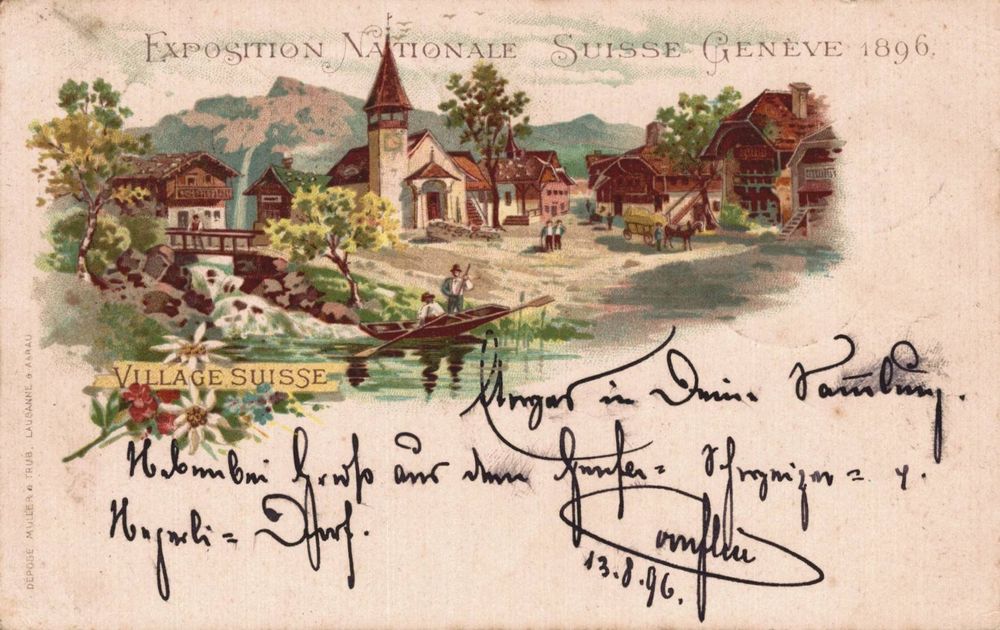 EXPOSITION NATIONALE SUISSE GENÈVE 1896.
VILLAGE SUISSE
in Deine Sammlung.
Nebenbei Gruß aus dem Genfer= Schweizer= &
Negerli= Dorf.
13.8.96.
DÉPOSÉ MÜLLER & TRÜB, LAUSANNE & AARAU